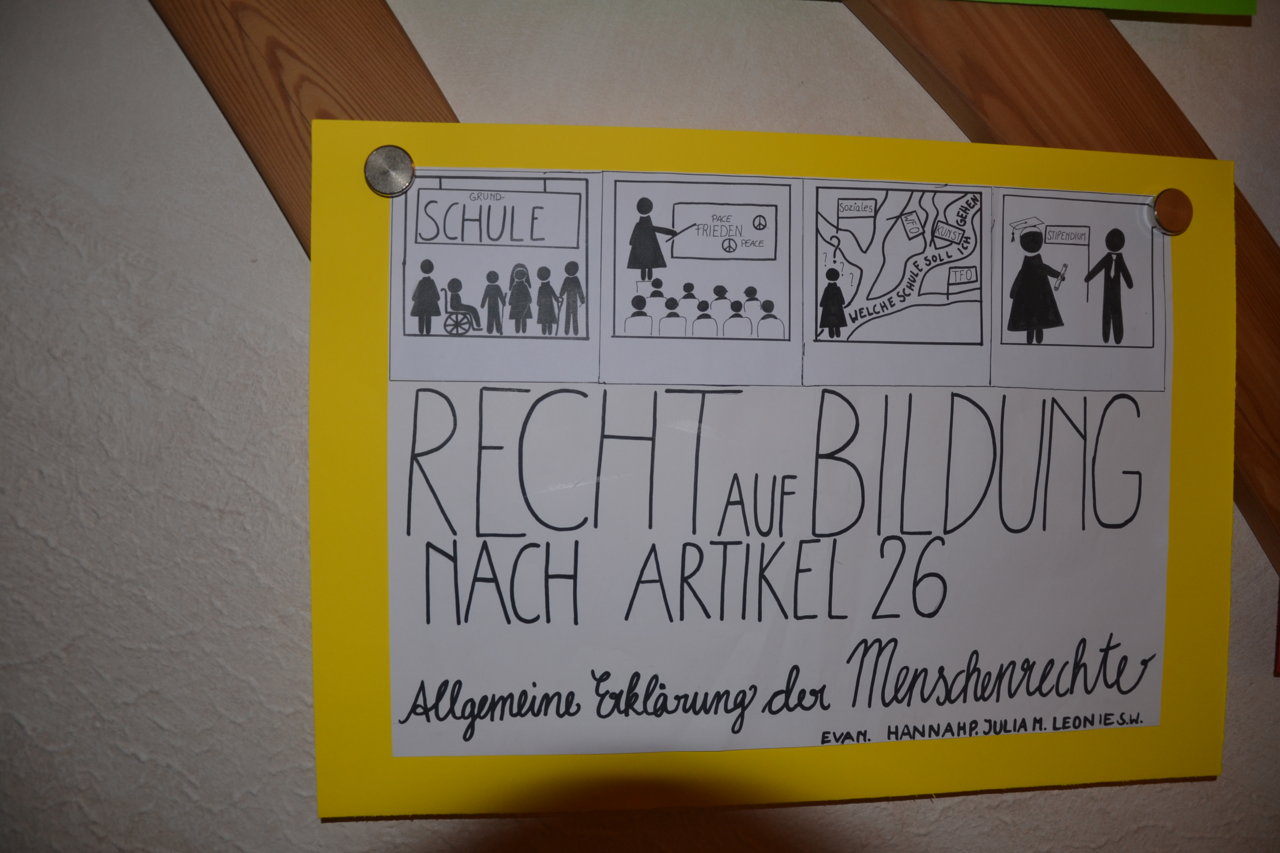 GRUND-
SCHULE
PACE
FRIEDEN
PEACE
Soziales
WFO
KUNST
TFO
WELCHE SCHULE SOLL ICH GEHEN
? ? ? ?
STIPENDIUM
RECHT AUF BILDUNG
NACH ARTIKEL 26
Allgemeine Erklärung der Menschenrechte
EVA M. HANNAH P. JULIA M. LEONIE S.W.